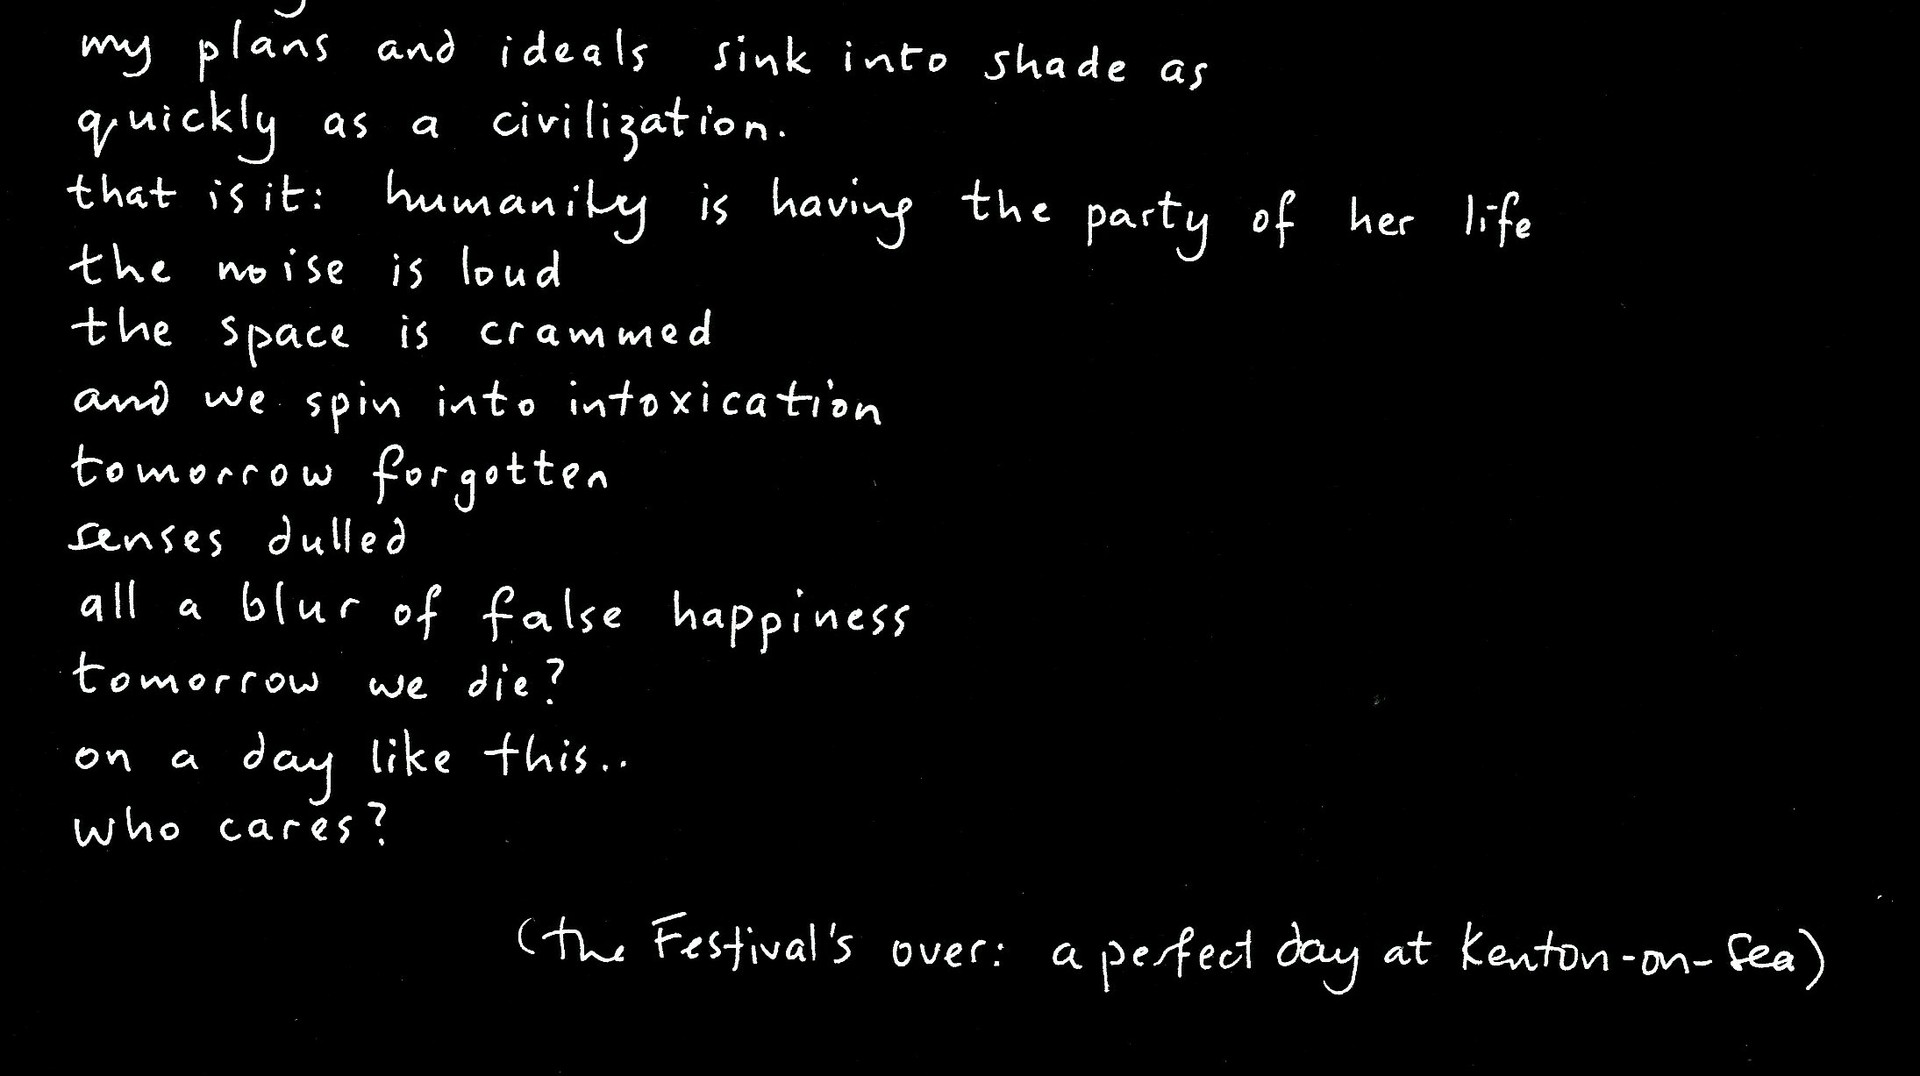 my plans and ideals sink into shade as
quickly as a civilization.
that is it: humanity is having the party of her life
the noise is loud
the space is crammed
and we spin into intoxication
tomorrow forgotten
senses dulled
all a blur of false happiness
tomorrow we die?
on a day like this..
who cares?
(the Festival's over: a perfect day at Kenton-on-Sea)